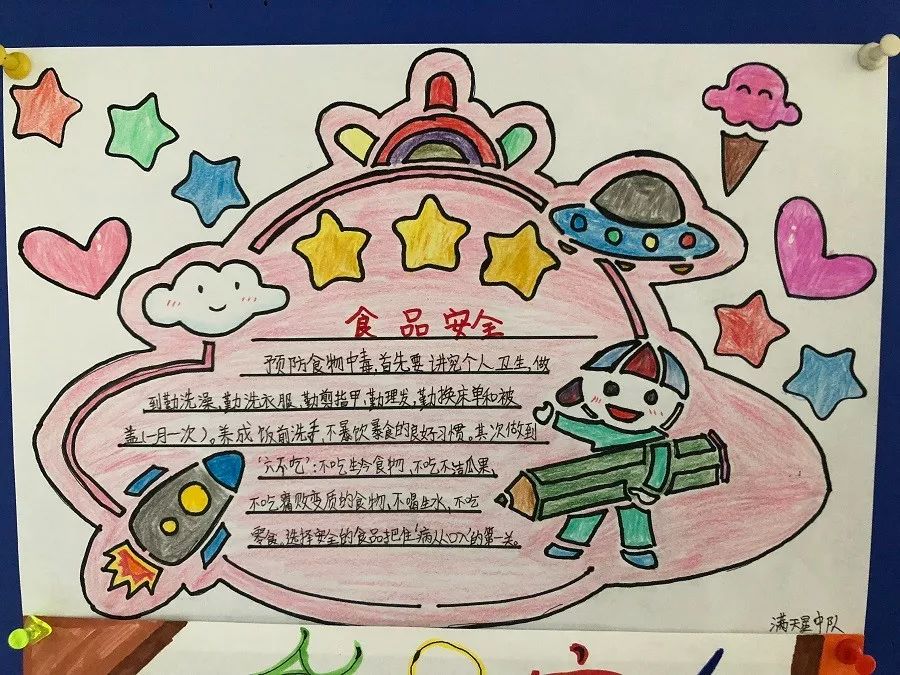 食品安全
预防食物中毒,首先要讲究个人卫生,做
到勤洗澡,勤洗衣服,勤剪指甲,勤理发,勤换床单和被
盖(一月一次)。养成饭前洗手,不暴饮暴食的良好习惯。其次做到
“六不吃”:不吃生冷食物,不吃不洁瓜果,
不吃腐败变质的食物,不喝生水,不吃
零食。选择安全的食品把住“病从口入”的第一关。
满天星中队